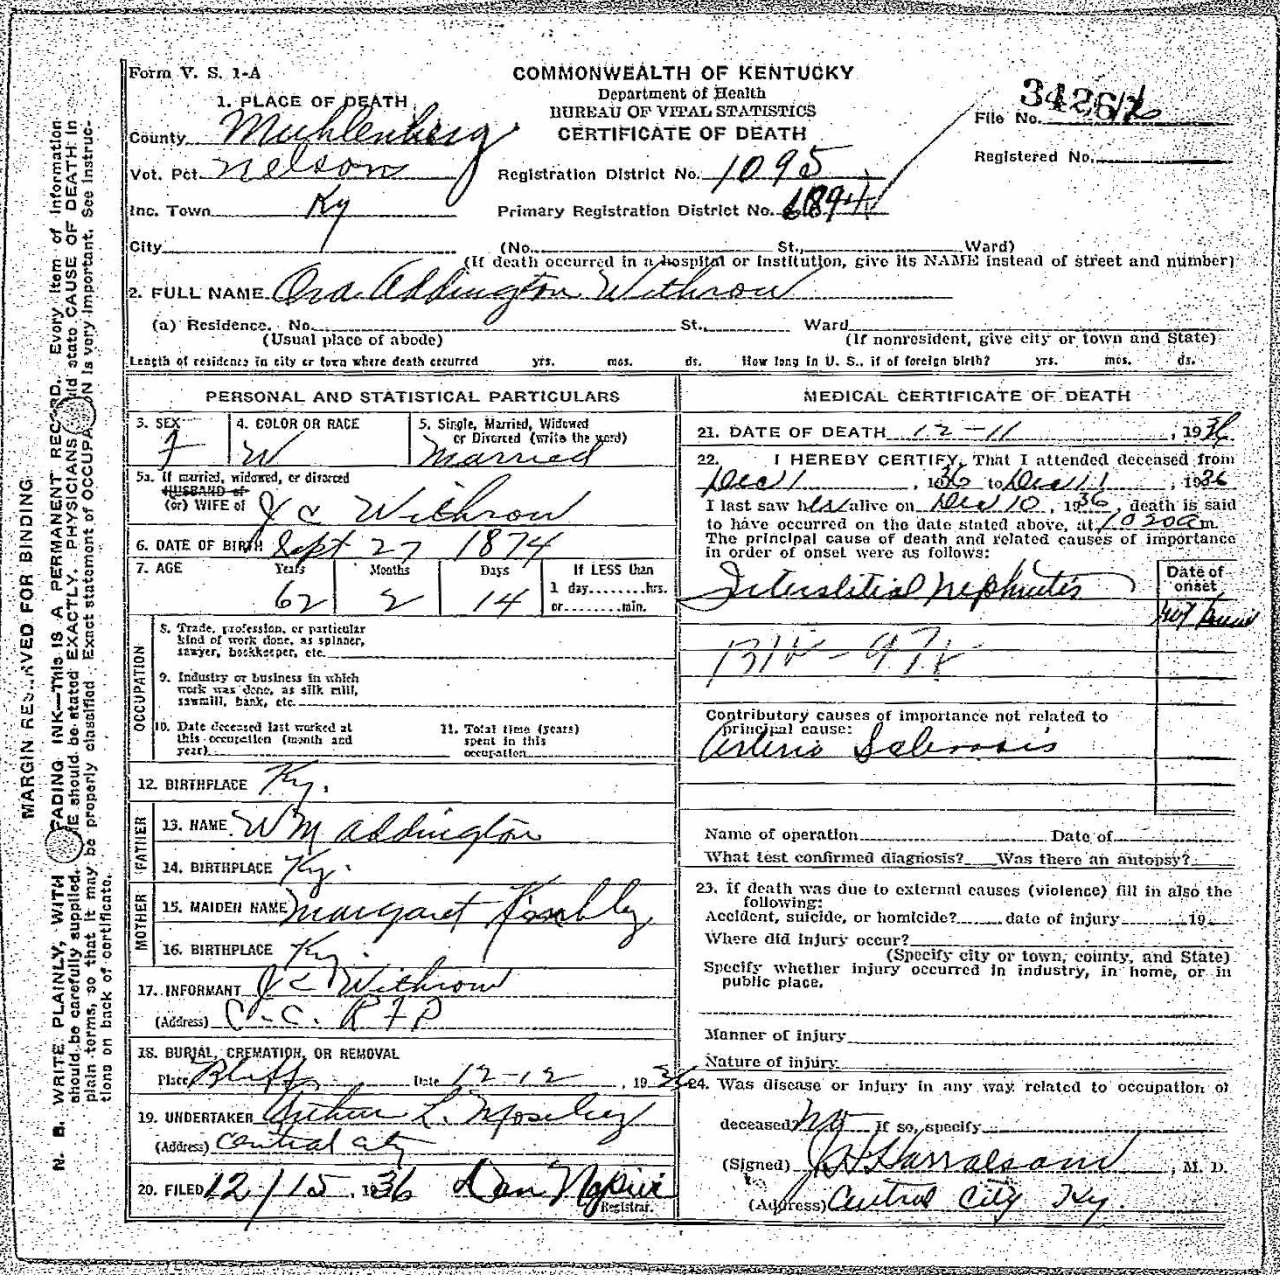 Form V. S. 1-A
COMMONWEALTH OF KENTUCKY
Department of Health
BUREAU OF VITAL STATISTICS
CERTIFICATE OF DEATH
File No. 3426
Registered No.
1. PLACE OF DEATH
County Muhlenberg
Vot. Pct. Nelson
Registration District No. 1095
Inc. Town Ky
Primary Registration District No. 6894
City (No. St., Ward)
(If death occurred in a hospital or institution, give its NAME instead of street and number)
2. FULL NAME Ora Addington Withrow
(a) Residence. No. St., Ward
(Usual place of abode) (If nonresident, give city or town and State)
Length of residence in city or town where death occurred yrs. mos. ds. How long in U. S., if of foreign birth? yrs. mos. ds.
PERSONAL AND STATISTICAL PARTICULARS
3. SEX F
4. COLOR OR RACE W
5. Single, Married, Widowed
or Divorced (write the word)
Married
5a. If married, widowed, or divorced
HUSBAND of
(or) WIFE of J C Withrow
6. DATE OF BIRTH Sept 27 1874
7. AGE Years Months Days If LESS than
62 2 14 1 day........hrs.
or........min.
OCCUPATION
8. Trade, profession, or particular
kind of work done, as spinner,
sawyer, bookkeeper, etc.
9. Industry or business in which
work was done, as silk mill,
sawmill, bank, etc.
10. Date deceased last worked at
this occupation (month and
year)
11. Total time (years)
spent in this
occupation
12. BIRTHPLACE Ky.
FATHER
13. NAME Wm Addington
14. BIRTHPLACE Ky.
MOTHER
15. MAIDEN NAME Margaret
16. BIRTHPLACE Ky.
17. INFORMANT J C Withrow
(Address) C.C. R F D
18. BURIAL, CREMATION, OR REMOVAL
Place Bluff Date 12-12, 1936
19. UNDERTAKER Arthur L. Moseley
(Address) Central City
20. FILED 12/15, 1936 Dan
Registrar.
MEDICAL CERTIFICATE OF DEATH
21. DATE OF DEATH 12-11, 1936
22. I HEREBY CERTIFY, That I attended deceased from
Dec 1, 1936 to Dec 11, 1936
I last saw her alive on Dec 10, 1936, death is said
to have occurred on the date stated above, at 1030am.
The principal cause of death and related causes of importance
in order of onset were as follows:
Date of
onset
Interstitial nephritis
not
131V-97V
Contributory causes of importance not related to
principal cause:
Arterio Sclerosis
Name of operation Date of
What test confirmed diagnosis? Was there an autopsy?
23. If death was due to external causes (violence) fill in also the
following:
Accident, suicide, or homicide? date of injury 19
Where did injury occur?
(Specify city or town, county, and State)
Specify whether injury occurred in industry, in home, or in
public place.
Manner of injury
Nature of injury
24. Was disease or injury in any way related to occupation of
deceased? No If so, specify
(Signed) J H Harralson, M. D.
(Address) Central City Ky.
MARGIN RESERVED FOR BINDING
N. B. WRITE PLAINLY, WITH FADING INK—THIS IS A PERMANENT RECORD. Every item of information
should be carefully supplied. should be stated EXACTLY. PHYSICIANS should state CAUSE OF DEATH in
plain terms, so that it may be properly classified. Exact statement of OCCUPATION is very important. See Instruc-
tions on back of certificate.